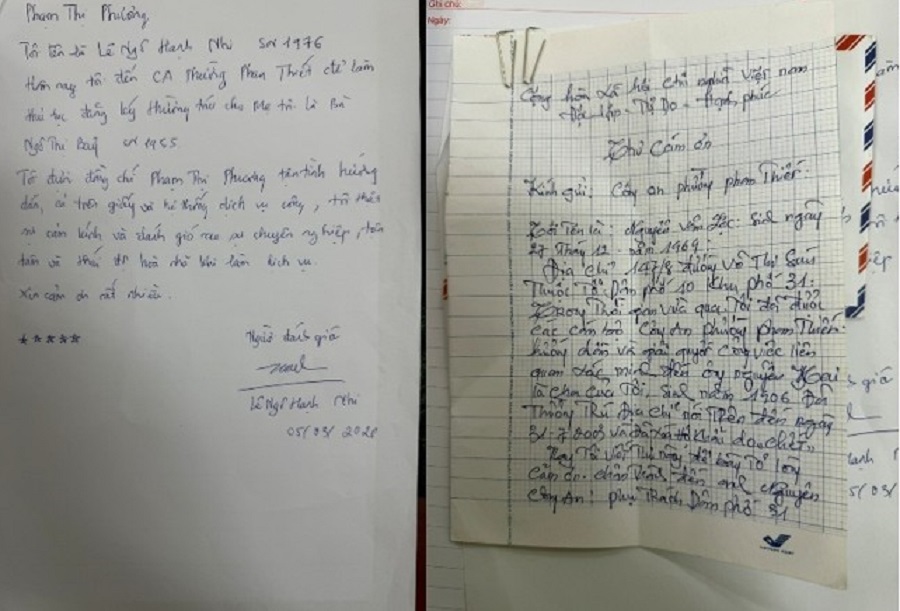 Phạm Thị Phương,
Tôi tên là Lê Ngô Hạnh Nhi SN 1976
Hôm nay tôi đến CA Phường Phan Thiết để làm
thủ tục đăng ký thường trú cho Mẹ tôi là Bà
Ngô Thị Bảy SN 1955
Tôi được đồng chí Phạm Thị Phương tận tình hướng
dẫn, cả trên giấy và hệ thống dịch vụ công, tôi thật
sự cảm kích và đánh giá cao sự chuyên nghiệp, tận
tâm và thái độ hoà nhã khi làm dịch vụ.
Xin cảm ơn rất nhiều.
*****
Người đánh giá
Lê Ngô Hạnh Nhi
05/03/
Ghi chú:
Ngày:
Cộng hòa xã hội chủ nghĩa Việt Nam
Độc lập - Tự Do - Hạnh phúc
Thư Cảm ơn
Kính gửi: Công an phường phan Thiết.
Tôi Tên là: Nguyễn văn Sinh ngày
27 Tháng 12 - năm 1969.
Địa chỉ 197/8 đường Võ Thị Sáu
Thuộc Tổ Dân phố 10 khu phố 31.
Trong Thời gian vừa qua Tôi đã được
các cán bộ Công An phường phan Thiết
hướng dẫn và giải quyết công việc liên
quan xác minh đến ông nguyễn
là cha của Tôi, sinh năm 1906
Thường Trú địa chỉ nói Trên đến ngày
31-7-2003 và đã khai
Nay Tôi viết Thư này để bày Tỏ lòng
cảm ơn chân thành đến anh Nguyên
Công An: phụ Trách Dân phố 31